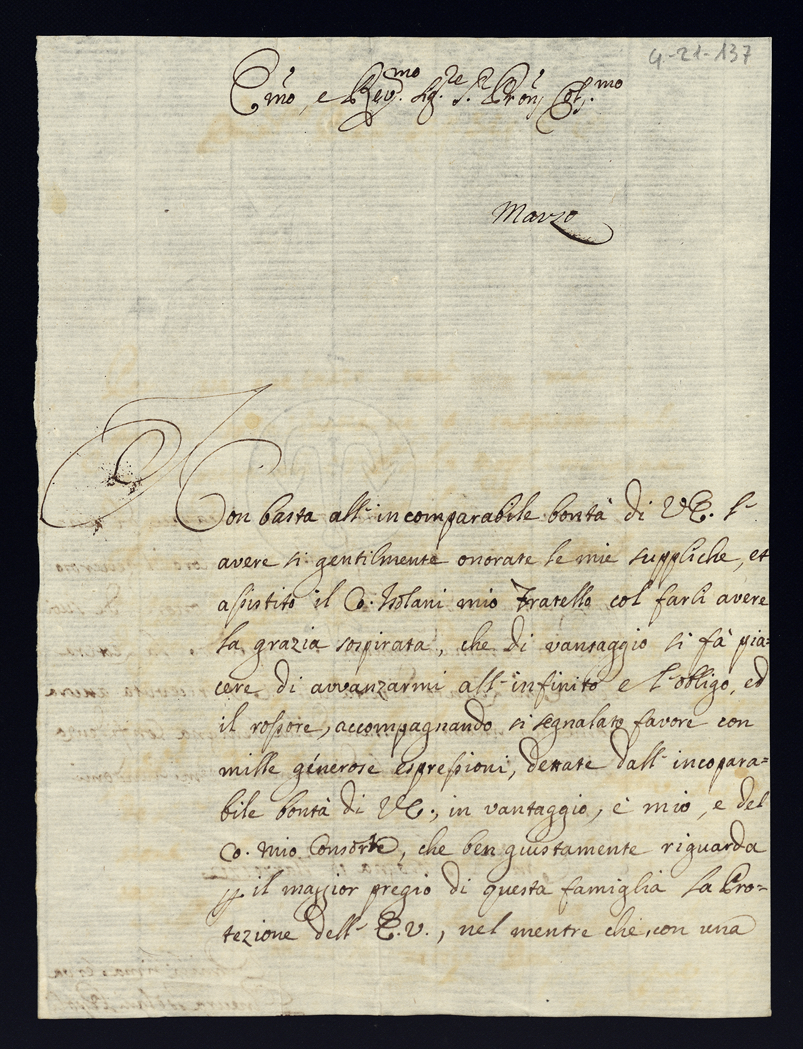 4-21-137
E͞mo, e Rev.mo Sig.re S.r P͞ron, Col.mo
Marzo
Non basta all' incomparabile bontà di V.E. l'
avere si gentilmente onorate le mie suppliche, et
assistito il Co. Isolani mio Fratello col farli avere
la grazia sospirata, che di vantaggio si fà pia=
cere di avvanzarmi all' infinito e l'obligo, ed
il rossore, accompagnando si segnalato favore con
mille generose espressioni, dettate dall' incopara=
bile bontà di V.E., in vantaggio, e mio, e del
Co. mio Consorte, che ben giustamente riguarda
p il maggior pregio di questa famiglia la Pro=
tezione dell' E.V., nel mentre che, con una